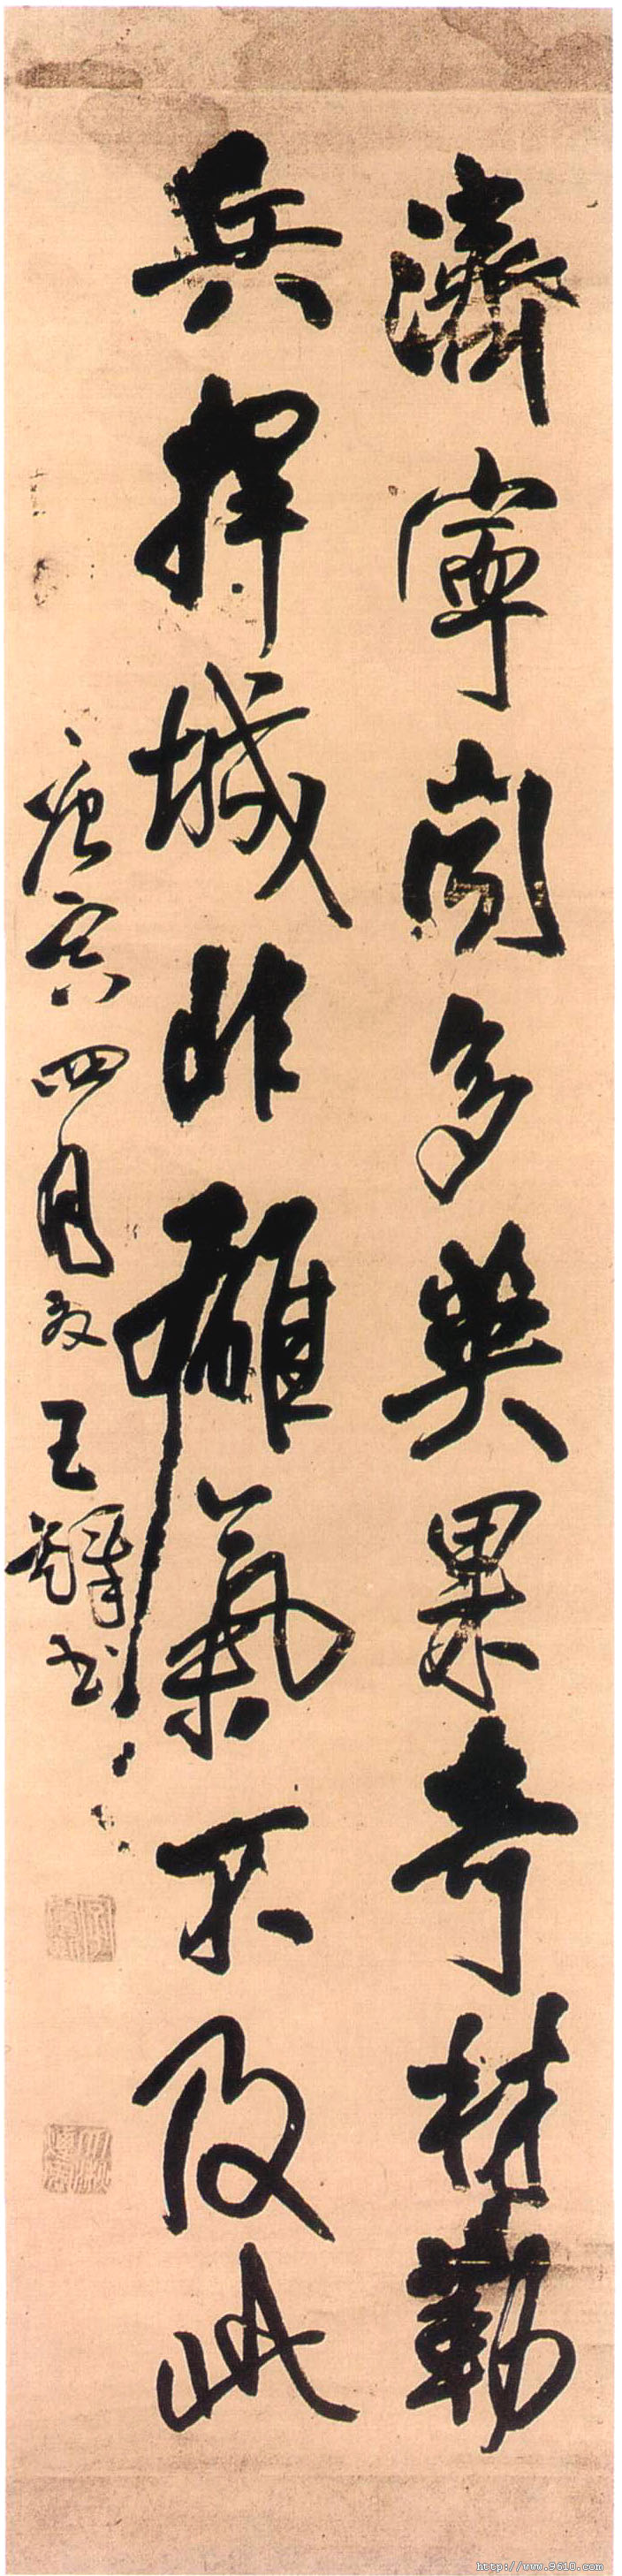 濟寧間多英果奇材勒
兵捍城非雄氣不及此
庚寅四月王鐸書
http://www.9610.com